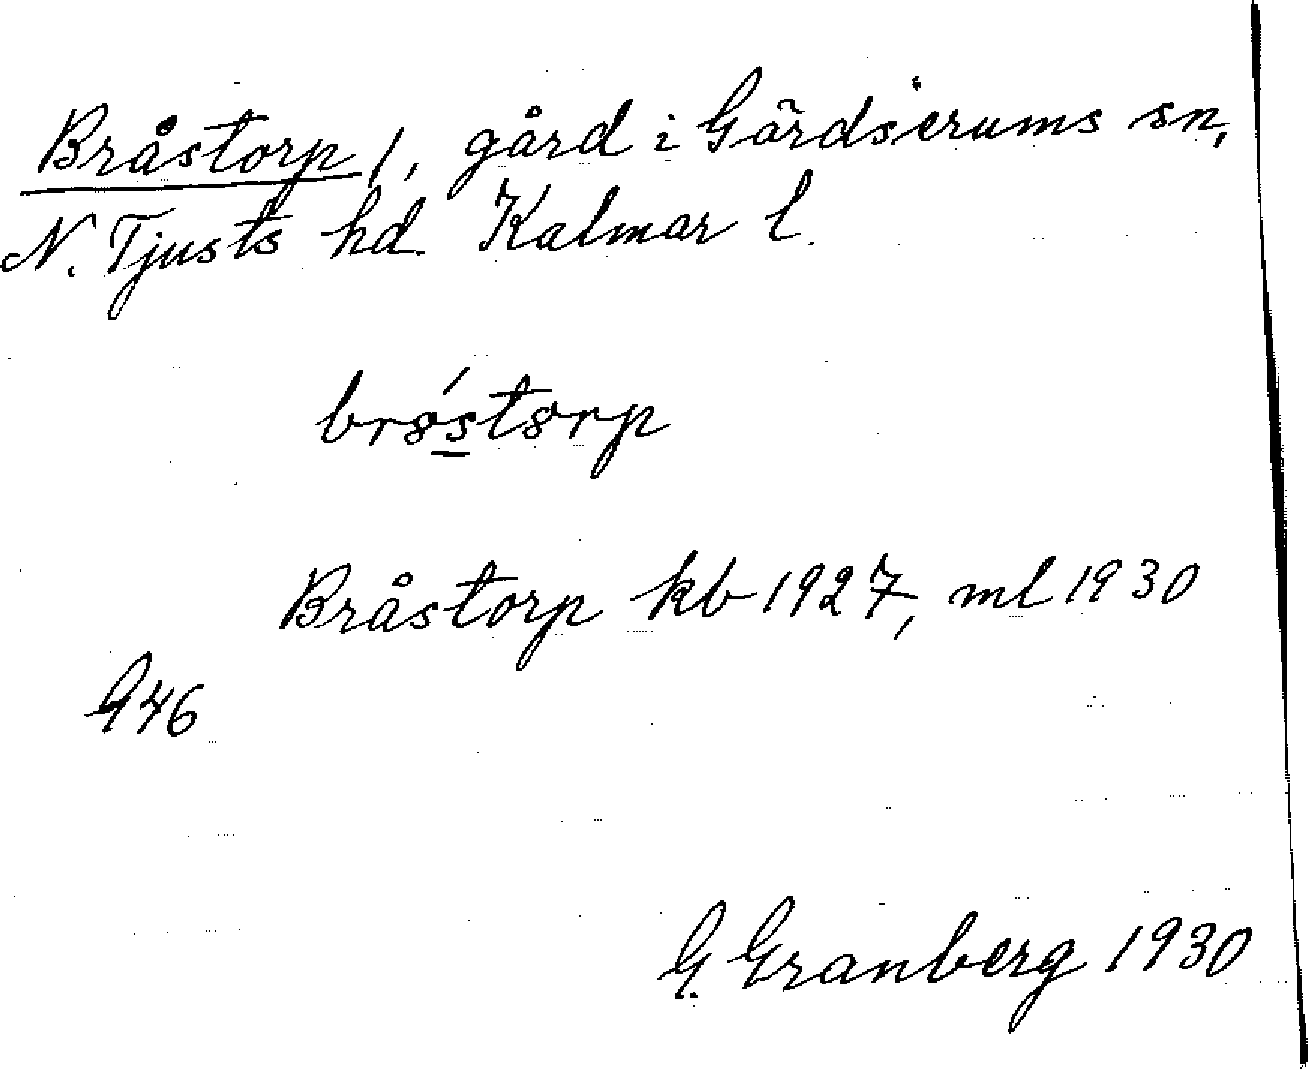 Bråstorp 1, gård i Gärdserums sn,
N. Tjusts hd. Kalmar l.
bro´storp
Bråstorp kb 1927, ml 1930
946
G. Granberg 1930